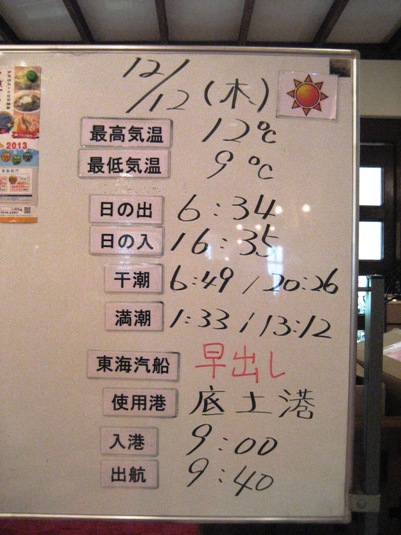 2013
12/12(木)
最高気温 12℃
最低気温 9℃
日の出 6:34
日の入 16:35
干潮 6:49 / 20:26
満潮 1:33 / 13:12
東海汽船 早出し
使用港 底土港
入港 9:00
出航 9:40